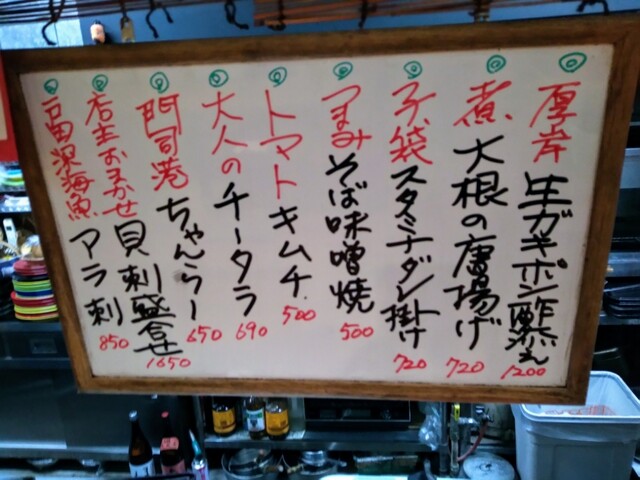 厚岸 生ガキポン酢がえ 1200
煮 大根の唐揚げ 720
子袋 スタミナダレ掛け 720
つまみ そば味噌焼 500
トマト キムチ 500
大人の チータラ 690
門司港 ちゃんらー 650
店主おまかせ 貝刺盛合せ 1650
戸田深海魚 アラ刺 850